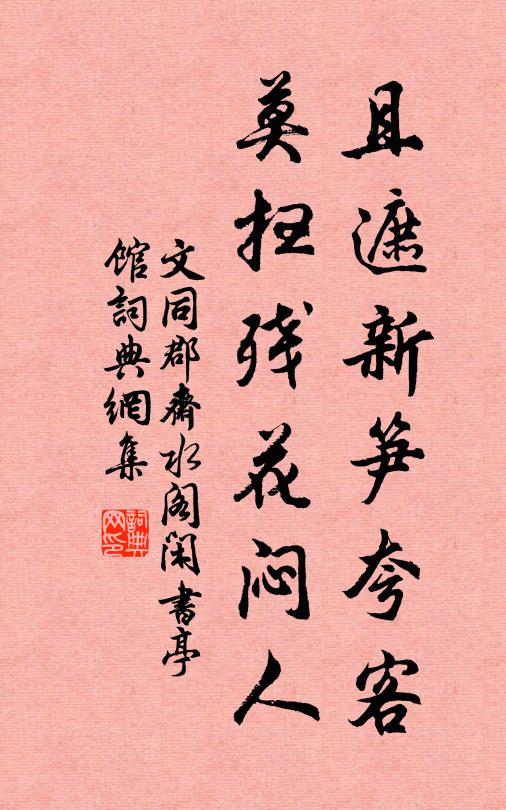 且遮新笋夸客
莫扫残花闷人
文同郡齋水阁闲書亭
馆詞典網集
詞典
网印